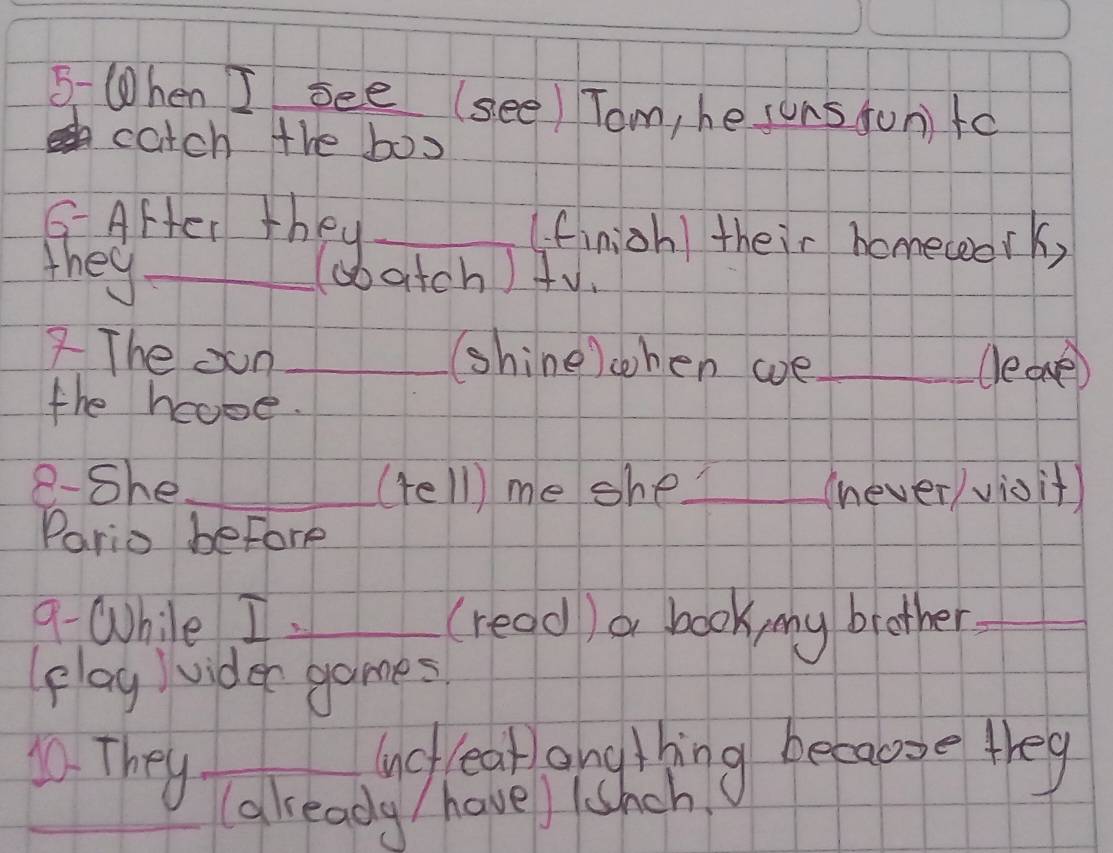 5- When I see (see) Tom, he runs (run) to
catch the bus
6- After they ____ (finish) their homework,
they ____ (watch) tv.
7- The sun ____ (shine) when we ____ (leave)
the house.
8- She ____ (tell) me she ____ (never/visit)
Paris before
9- While I ____ (read) a book, my brother ____
(play) video games.
10- They ____ (not/eat) anything because they
____ (already/have) lunch.